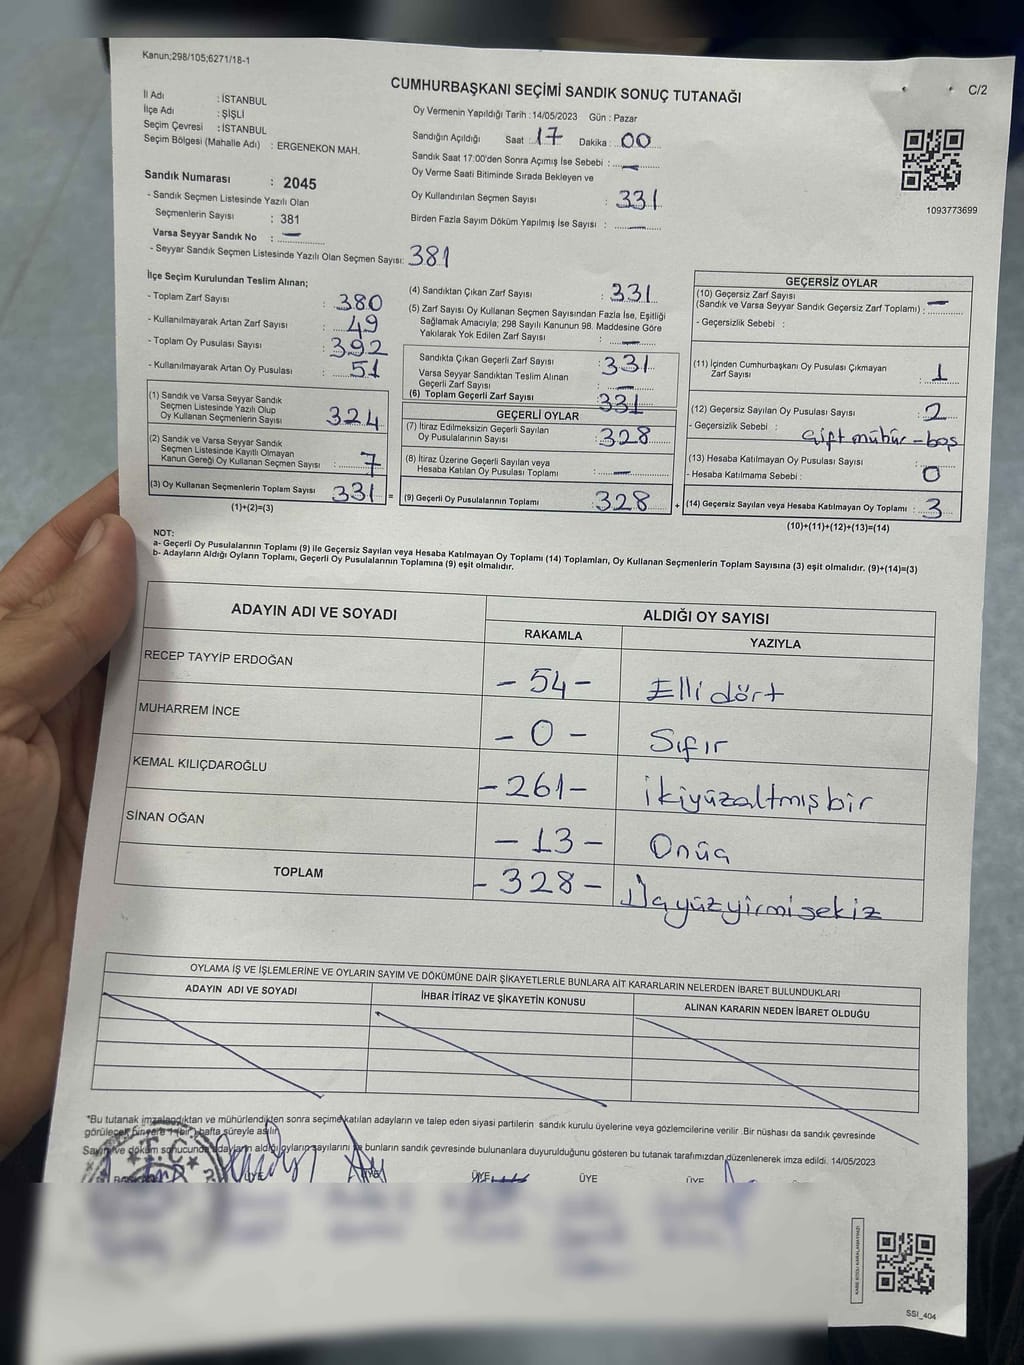 Kanun;298/105;6271/18-1
CUMHURBAŞKANI SEÇİMİ SANDIK SONUÇ TUTANAĞI
C/2
İl Adı : İSTANBUL
İlçe Adı : ŞİŞLİ
Seçim Çevresi : İSTANBUL
Seçim Bölgesi (Mahalle Adı) : ERGENEKON MAH.
Sandık Numarası : 2045
- Sandık Seçmen Listesinde Yazılı Olan
Seçmenlerin Sayısı : 381
Varsa Seyyar Sandık No : —
- Seyyar Sandık Seçmen Listesinde Yazılı Olan Seçmen Sayısı: 381
Oy Vermenin Yapıldığı Tarih : 14/05/2023 Gün : Pazar
Sandığın Açıldığı Saat : 17 Dakika : 00
Sandık Saat 17:00'den Sonra Açımış İse Sebebi : —
Oy Verme Saati Bitiminde Sırada Bekleyen ve
Oy Kullandırılan Seçmen Sayısı : 331
Birden Fazla Sayım Döküm Yapılmış İse Sayısı : —
1093773699
İlçe Seçim Kurulundan Teslim Alınan;
- Toplam Zarf Sayısı : 380
- Kullanılmayarak Artan Zarf Sayısı : 49
- Toplam Oy Pusulası Sayısı : 392
- Kullanılmayarak Artan Oy Pusulası : 51
(1) Sandık ve Varsa Seyyar Sandık
Seçmen Listesinde Yazılı Olup
Oy Kullanan Seçmenlerin Sayısı : 324
(2) Sandık ve Varsa Seyyar Sandık
Seçmen Listesinde Kayıtlı Olmayan
Kanun Gereği Oy Kullanan Seçmen Sayısı : 7
(3) Oy Kullanan Seçmenlerin Toplam Sayısı 331 =
(1)+(2)=(3)
(4) Sandıktan Çıkan Zarf Sayısı : 331
(5) Zarf Sayısı Oy Kullanan Seçmen Sayısından Fazla İse, Eşitliği
Sağlamak Amacıyla; 298 Sayılı Kanunun 98. Maddesine Göre
Yakılarak Yok Edilen Zarf Sayısı : —
Sandıkta Çıkan Geçerli Zarf Sayısı : 331
Varsa Seyyar Sandıktan Teslim Alınan
Geçerli Zarf Sayısı : —
(6) Toplam Geçerli Zarf Sayısı : 331
GEÇERLİ OYLAR
(7) İtiraz Edilmeksizin Geçerli Sayılan
Oy Pusulalarının Sayısı : 328
(8) İtiraz Üzerine Geçerli Sayılan veya
Hesaba Katılan Oy Pusulası Toplamı : —
(9) Geçerli Oy Pusulalarının Toplamı : 328 +
GEÇERSİZ OYLAR
(10) Geçersiz Zarf Sayısı
(Sandık ve Varsa Seyyar Sandık Geçersiz Zarf Toplamı) : —
- Geçersizlik Sebebi :
(11) İçinden Cumhurbaşkanı Oy Pusulası Çıkmayan
Zarf Sayısı : 1
(12) Geçersiz Sayılan Oy Pusulası Sayısı : 2
- Geçersizlik Sebebi : Çift mühür - boş
(13) Hesaba Katılmayan Oy Pusulası Sayısı : 0
- Hesaba Katılmama Sebebi :
(14) Geçersiz Sayılan veya Hesaba Katılmayan Oy Toplamı : 3
(10)+(11)+(12)+(13)=(14)
NOT:
a- Geçerli Oy Pusulalarının Toplamı (9) ile Geçersiz Sayılan veya Hesaba Katılmayan Oy Toplamı (14) Toplamları, Oy Kullanan Seçmenlerin Toplam Sayısına (3) eşit olmalıdır. (9)+(14)=(3)
b- Adayların Aldığı Oyların Toplamı, Geçerli Oy Pusulalarının Toplamına (9) eşit olmalıdır.
ADAYIN ADI VE SOYADI ALDIĞI OY SAYISI
RAKAMLA YAZIYLA
RECEP TAYYİP ERDOĞAN - 54 - Elli dört
MUHARREM İNCE - 0 - Sıfır
KEMAL KILIÇDAROĞLU - 261 - ikiyüzaltmışbir
SİNAN OĞAN - 13 - Onüç
TOPLAM - 328 - Üçyüzyirmisekiz
OYLAMA İŞ VE İŞLEMLERİNE VE OYLARIN SAYIM VE DÖKÜMÜNE DAİR ŞİKAYETLERLE BUNLARA AİT KARARLARIN NELERDEN İBARET BULUNDUKLARI
ADAYIN ADI VE SOYADI İHBAR İTİRAZ VE ŞİKAYETİN KONUSU ALINAN KARARIN NEDEN İBARET OLDUĞU
*Bu tutanak imzalandıktan ve mühürlendikten sonra seçime katılan adayların ve talep eden siyasi partilerin sandık kurulu üyelerine veya gözlemcilerine verilir .Bir nüshası da sandık çevresinde
görülecek bir yere 1 (bir) hafta süreyle asılır.
Sayım ve döküm sonucunda adayların aldığı oyların sayılarını ve bunların sandık çevresinde bulunanlara duyurulduğunu gösteren bu tutanak tarafımızdan düzenlenerek imza edildi. 14/05/2023
ÜYE ÜYE ÜYE ÜYE ÜYE
T.C.
SSİ_404